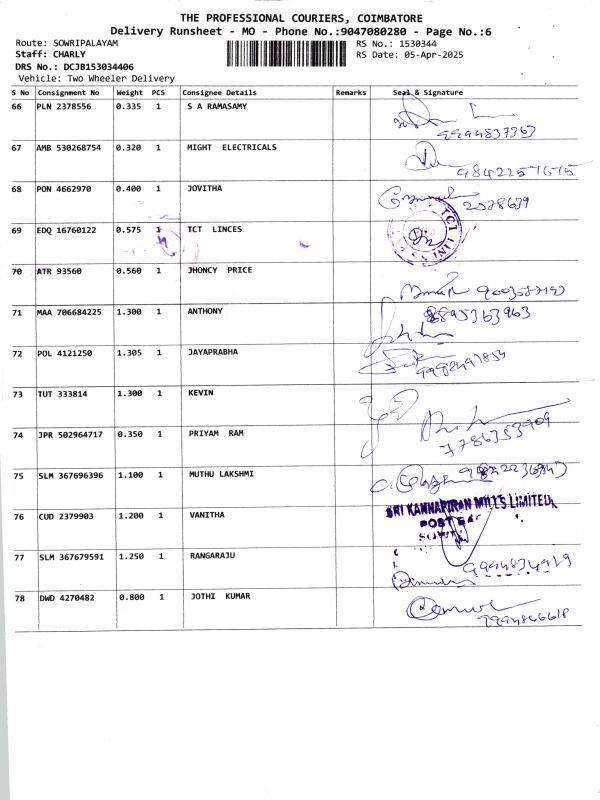 THE PROFESSIONAL COURIERS, COIMBATORE
Delivery Runsheet - MO - Phone No.:9047080280 - Page No.:6
Route: SOWRIPALAYAM RS No.: 1530344
Staff: CHARLY RS Date: 05-Apr-2025
DRS No.: DCJB153034406
Vehicle: Two Wheeler Delivery
S No Consignment No Weight PCS Consignee Details Remarks Seal & Signature
66 PLN 2378556 0.335 1 S A RAMASAMY
67 AMB 530268754 0.320 1 MIGHT ELECTRICALS
68 PON 4662970 0.400 1 JOVITHA
69 EDQ 16760122 0.575 1 TCT LINCES
70 ATR 93560 0.560 1 JHONCY PRICE
71 MAA 706684225 1.300 1 ANTHONY
72 POL 4121250 1.305 1 JAYAPRABHA
73 TUT 333814 1.300 1 KEVIN
74 JPR 502964717 0.350 1 PRIYAM RAM
7786353909
75 SLM 367696396 1.100 1 MUTHU LAKSHMI
SRI KANNAPIRAN MILLS LIMITED,
76 CUD 2379903 1.200 1 VANITHA
POST
77 SLM 367679591 1.250 1 RANGARAJU
78 DWD 4270482 0.800 1 JOTHI KUMAR